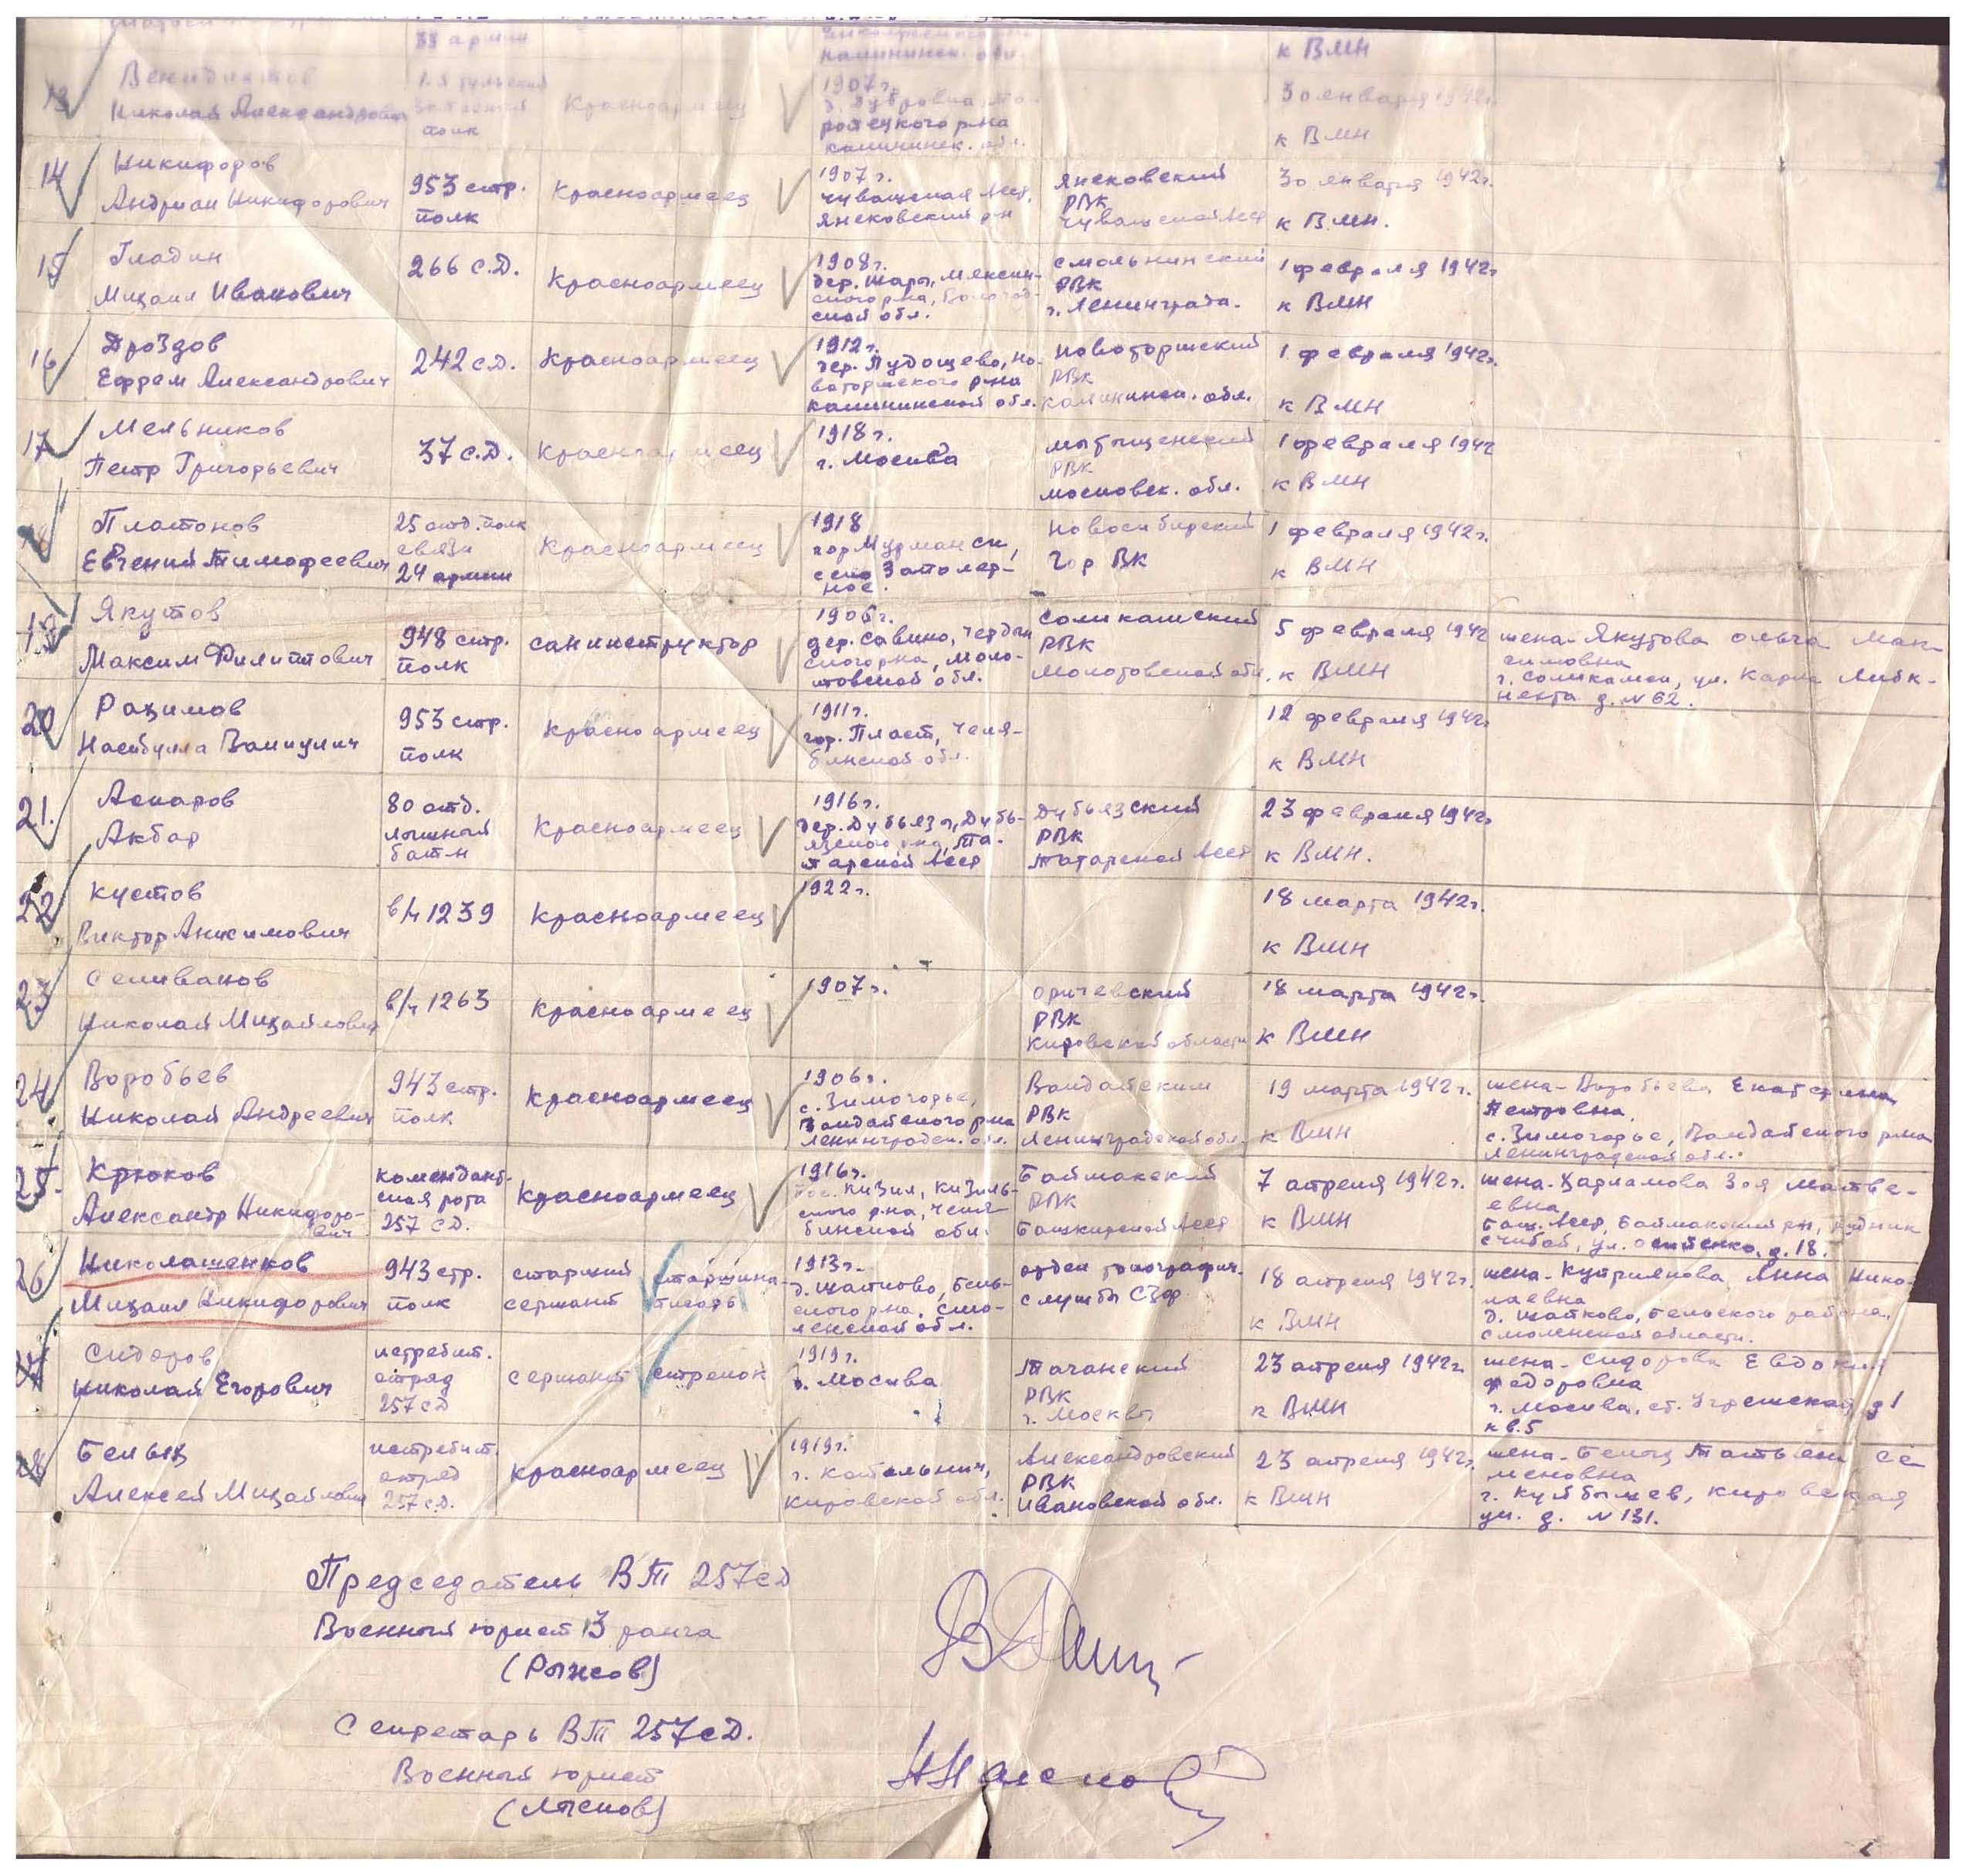 33 армии
калининск. обл.
к ВМН
13
Венидиктов
Николай Александрович
запасной
полк
Красноармеец
1907г.
д. Дубровна, То-
ропецкого р-на
калининск. обл.
30 января 1942г.
к ВМН
14
Никифоров
Андриан Никифорович
953 стр.
полк
Красноармеец
1907г.
чувашская Асср,
янсковский р-н
янсковский
РВК
чувашской Асср
30 января 1942г.
к ВМН.
15
Гладин
Михаил Иванович
266 с.д.
Красноармеец
1908г.
дер. Шары, мяксин-
ского р-на, Вологод-
ской обл.
смольнинский
РВК
г. Ленинграда.
1 февраля 1942г
к ВМН
16
Дроздов
Ефрем Александрович
242 с.д.
Красноармеец
1912г.
дер. Пудощево, но-
воторжского р-на
калининской обл.
новоторжский
РВК
калининск. обл.
1 февраля 1942г.
к ВМН
17
Мельников
Петр Григорьевич
37 с.д.
Красноармеец
1918г.
г. Москва
мытищенский
РВК
московск. обл.
1 февраля 1942
к ВМН
Платонов
Евгений Тимофеевич
25 отд. полк
связи
24 армии
Красноармеец
1918
гор Мурманск,
село Заполяр-
ное.
Новосибирский
Гор ВК
1 февраля 1942г.
к ВМН
19
Якутов
Максим Филиппович
948 стр.
полк
санинструктор
1906г.
дер. Савино, чердын
ского р-на, моло-
товской обл.
соликамский
РВК
молотовской обл.
5 февраля 1942
к ВМН
жена-Якутова ольга Мак-
симовна
г. соликамск, ул. Карла Либк-
нехта д. №62.
20
Рахимов
953 стр.
полк
Красноармеец
1911г.
гор. Пласт, челя-
бинской обл.
12 февраля 1942г
к ВМН
21.
Аскаров
Акбар
80 отд.
лыжный
бат-н
Красноармеец
1916г.
дер. Дубьязы, Дубь-
язского р-на, Та-
тарской Асср
Дубьязский
РВК
Татарской Асср
23 февраля 1942г
к ВМН.
22
Кустов
Виктор Анисимович
в/ч 1239
Красноармеец
1922г.
18 марта 1942г.
к ВМН
23
Селиванов
Николай Михайлович
в/ч 1263
Красноармеец
1907г.
оричевский
РВК
Кировской области
18 марта 1942г.
к ВМН
24
Воробьев
Николай Андреевич
943 стр.
полк
Красноармеец
1906г.
с. Зимогорье,
Валдайского р-на
Ленинградск. обл.
Валдайским
РВК
Ленинградской обл.
19 марта 1942г.
к ВМН
жена-Воробьева Екатерина
Петровна
с. Зимогорье, Валдайского р-на
Ленинградской обл.
25.
Крюков
Александр Никифоро-
вич
комендант-
ская рота
257 сд.
Красноармеец
1916г.
пос. Кизил, Кизиль-
ского р-на, челя-
бинской обл.
Баймакский
РВК
Башкирской Асср
7 апреля 1942г.
к ВМН
жена-Харламова Зоя Матве-
евна
Баш. Асср, Баймакский р-н, рудник
сибай, ул. осипенко, д. 18.
26
Николашенков
Михаил Никифорович
943 стр.
полк
старший
сержант
старшина-
писарь
1913г.
д. Шапково, Бель-
ского р-на, смо-
ленской обл.
отдел топографич.
службы СЗФ
18 апреля 1942г.
к ВМН
жена-Куприянова Анна Нико-
лаевна
д. Шапково, Бельского района,
смоленской области.
27
Сидоров
Николай Егорович
истребит.
отряд
257 сд
сержант
стрелок
1919г.
г. Москва
Таганский
РВК
г. Москвы
23 апреля 1942г.
к ВМН
жена-Сидорова Евдокия
федоровна
г. Москва, ст. Угрешская, д 1
кв. 5
28
Белых
Алексей Михайлович
истребит.
отряд
257 с.д.
красноармеец
1919г.
г. Котельнич,
Кировской обл.
Александровский
РВК
Ивановской обл.
23 апреля 1942г.
к ВМН
жена-Белых Татьяна Се-
меновна
г. Куйбышев, Кировская
ул. д. №131.
Председатель ВТ 257сд
Военный юрист 3 ранга
(Рыжов)
Секретарь ВТ 257сд.
Военный юрист
(Лысков)